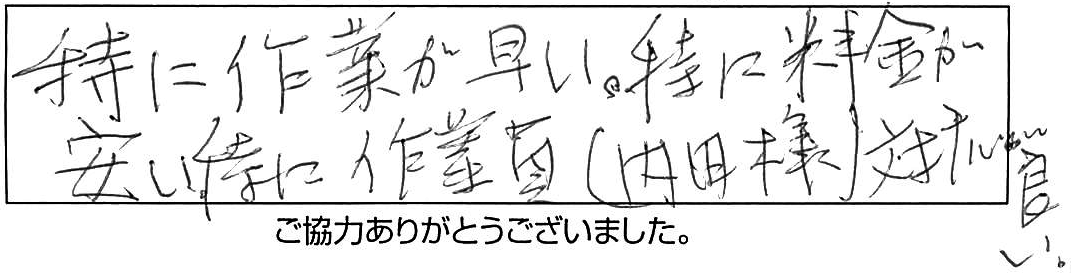 特に作業が早い。特に料金が
安い。特に作業員(内田様)対応が良い。
ご協力ありがとうございました。